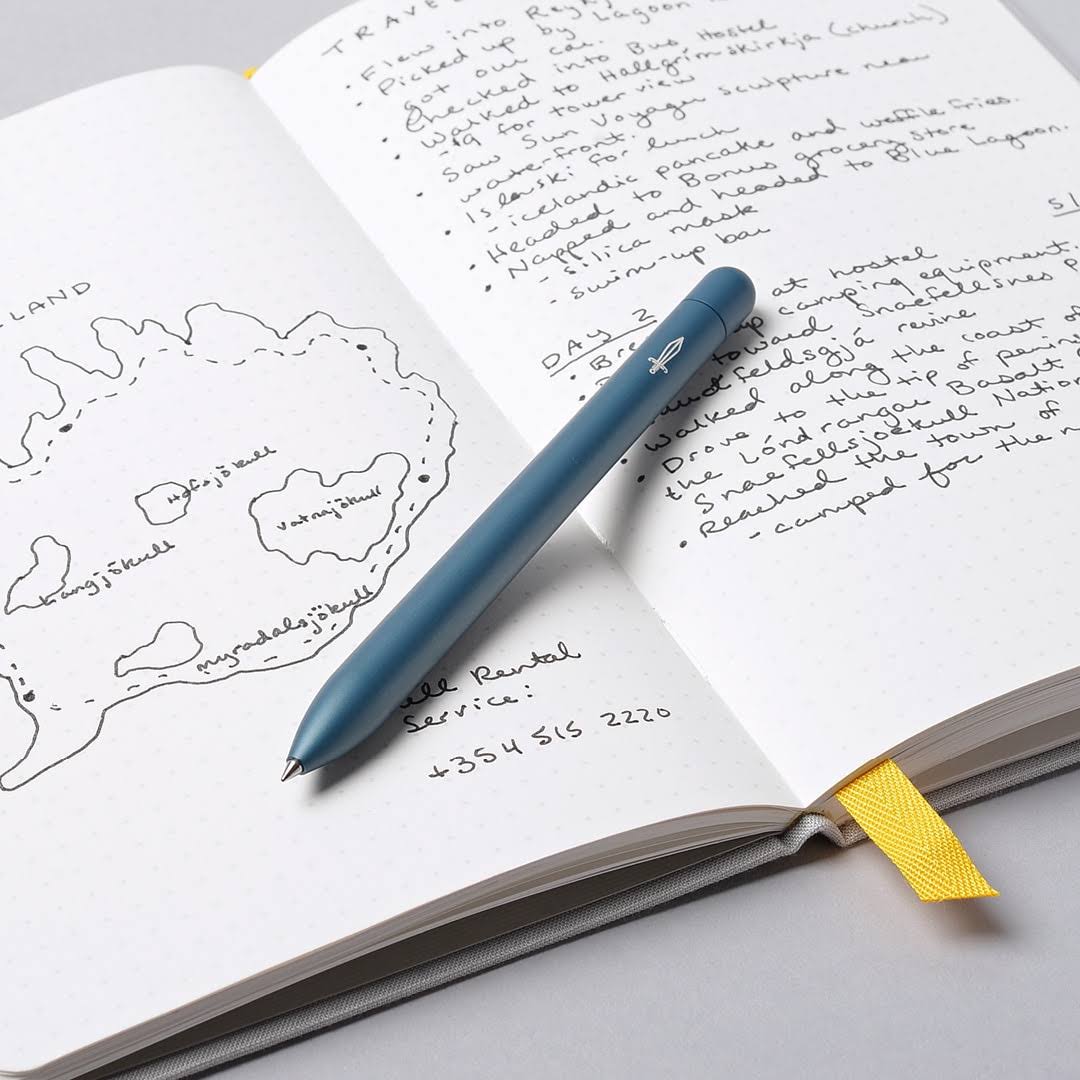 LAND
Hofsjökull
Vatnajökull
Langjökull
myradalsjökull
Rental
Service:
+354 515 2220
TRAVEL
Flew into Reykj
Picked up by Lagoon
got our car.
Checked into Bus Hostel
Walked to Hallgrimskirkja (church)
-$9 for tower view
Saw Sun Voyager sculpture near
waterfront.
Islenski for lunch
-icelandic pancake and waffle fries.
Headed to Bonus grocery store
Napped and headed to Blue Lagoon.
-silica mask
-swim-up bar
DAY 2
at hostel
up camping equipment.
toward Snaefellsnes
feldsgjá revine
Walked along the coast of
Drove to the tip of
the Lóndrangar Basalt
Snaefellsjoekull
Reached the town of
-camped for the